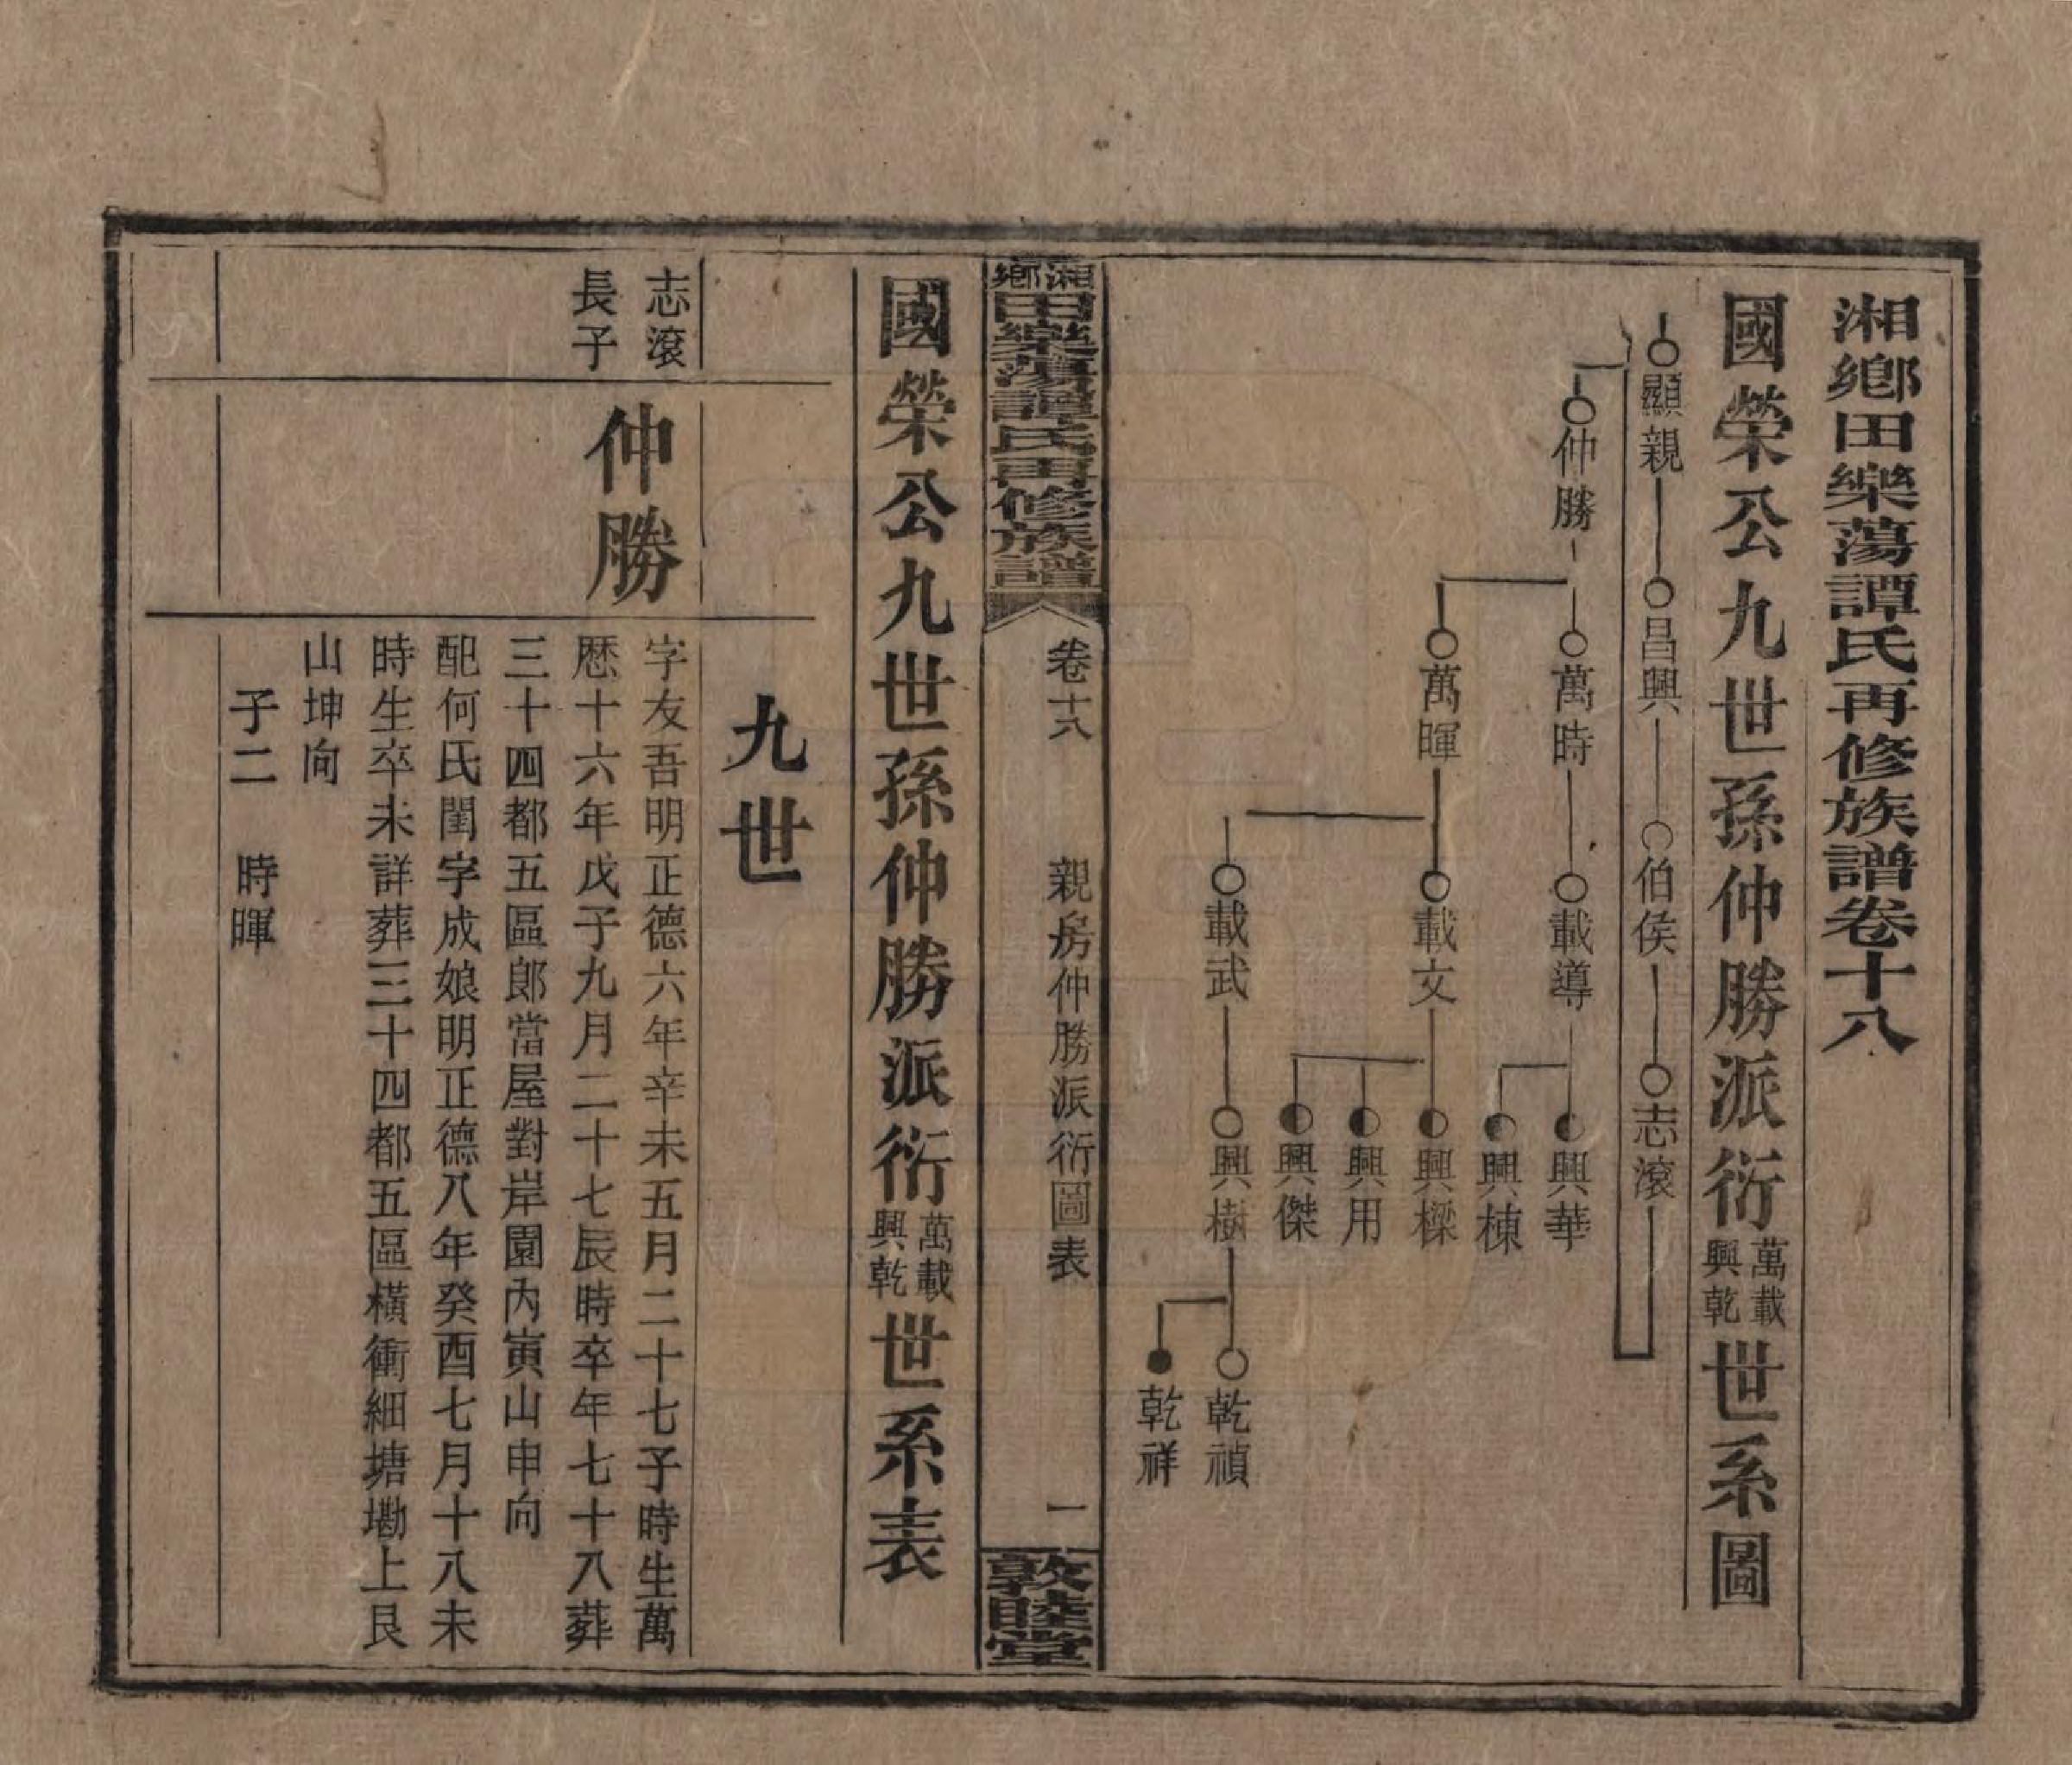 湘鄉田樂蕩譚氏再修族譜卷十八
國榮公九世孫仲勝派衍萬載興乾世系圖
顯親
昌興
伯侯
志滾
仲勝
萬時
載導
興華
興棟
萬暉
載文
興樑
興用
興傑
載武
興樹
乾禎
乾祥
湘鄉田樂蕩譚氏再修族譜
卷十八
親房仲勝派衍圖表
一
敦睦堂
國榮公九世孫仲勝派衍萬載興乾世系表
九世
志滾
長子
仲勝
字友吾明正德六年辛未五月二十七子時生萬
歷十六年戊子九月二十七辰時卒年七十八葬
三十四都五區郎當屋對岸園內寅山申向
配何氏閨字成娘明正德八年癸酉七月十八未
時生卒未詳葬三十四都五區橫衝細塘墈上艮
山坤向
子二 時暉